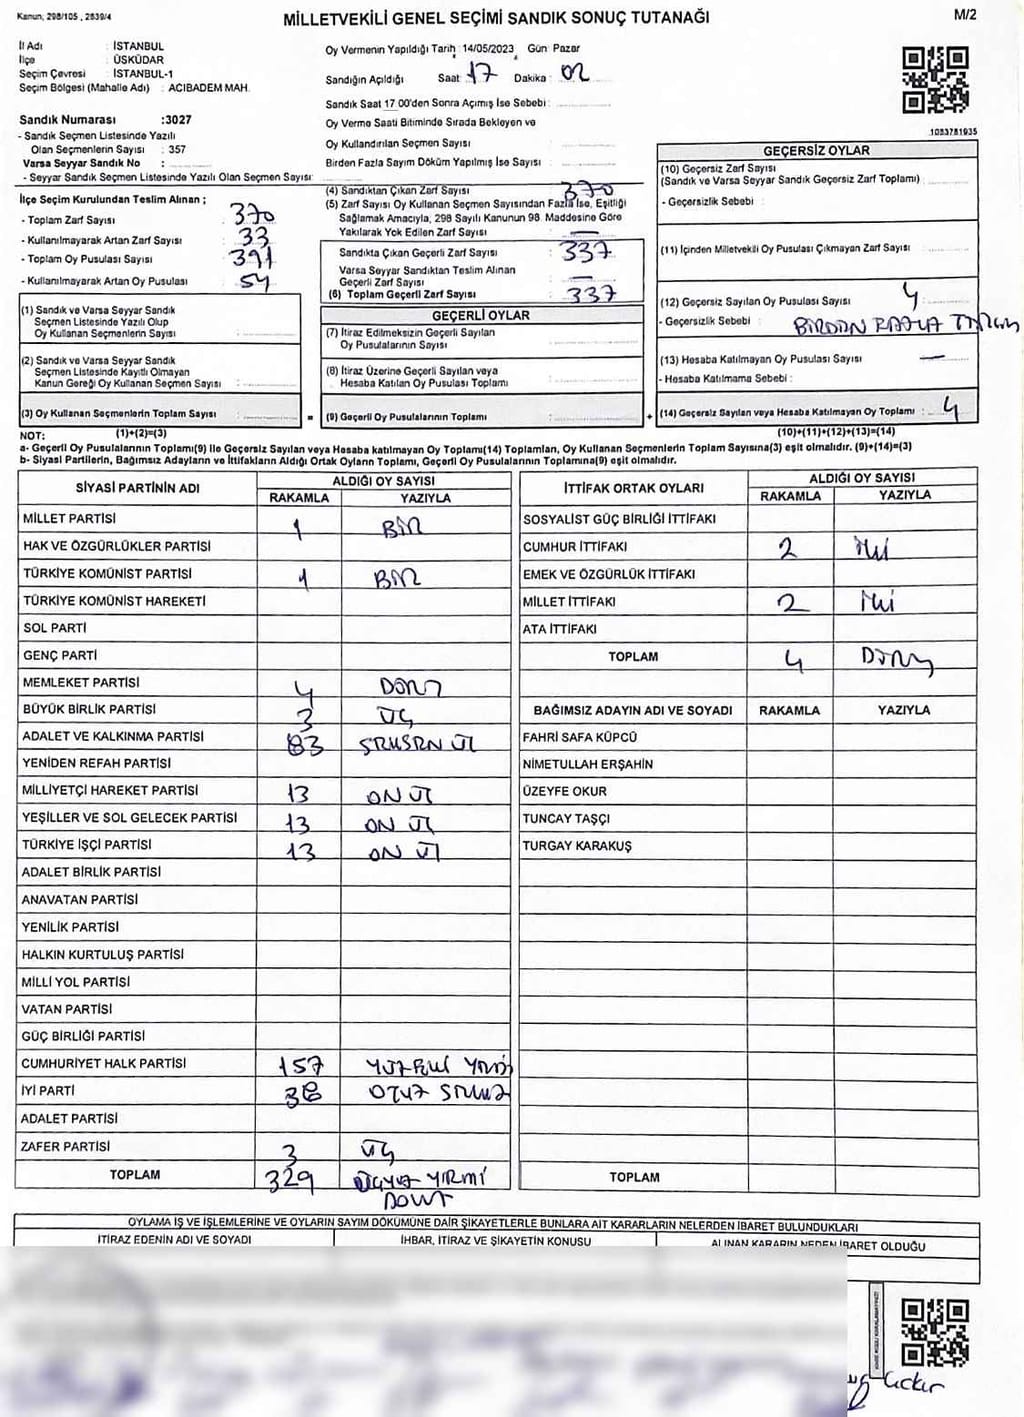 Kanun; 298/105 , 2839/4
MİLLETVEKİLİ GENEL SEÇİMİ SANDIK SONUÇ TUTANAĞI
M/2
İl Adı : İSTANBUL
İlçe : ÜSKÜDAR
Seçim Çevresi : İSTANBUL-1
Seçim Bölgesi (Mahalle Adı) : ACIBADEM MAH.
Sandık Numarası :3027
- Sandık Seçmen Listesinde Yazılı
Olan Seçmenlerin Sayısı : 357
Varsa Seyyar Sandık No :
- Seyyar Sandık Seçmen Listesinde Yazılı Olan Seçmen Sayısı:
Oy Vermenin Yapıldığı Tarih : 14/05/2023 Gün: Pazar
Sandığın Açıldığı Saat : 17 Dakika : 02
Sandık Saat 17 00'den Sonra Açımış İse Sebebi :
Oy Verme Saati Bitiminde Sırada Bekleyen ve
Oy Kullandırılan Seçmen Sayısı :
Birden Fazla Sayım Döküm Yapılmış İse Sayısı :
1083781935
İlçe Seçim Kurulundan Teslim Alınan ;
- Toplam Zarf Sayısı : 370
- Kullanılmayarak Artan Zarf Sayısı : 33
- Toplam Oy Pusulası Sayısı : 391
- Kullanılmayarak Artan Oy Pusulası : 54
(1) Sandık ve Varsa Seyyar Sandık
Seçmen Listesinde Yazılı Olup
Oy Kullanan Seçmenlerin Sayısı :
(2) Sandık ve Varsa Seyyar Sandık
Seçmen Listesinde Kayıtlı Olmayan
Kanun Gereği Oy Kullanan Seçmen Sayısı :
(3) Oy Kullanan Seçmenlerin Toplam Sayısı :
(1)+(2)=(3)
(4) Sandıktan Çıkan Zarf Sayısı : 370
(5) Zarf Sayısı Oy Kullanan Seçmen Sayısından Fazla İse, Eşitliği
Sağlamak Amacıyla, 298 Sayılı Kanunun 98. Maddesine Göre
Yakılarak Yok Edilen Zarf Sayısı : —
Sandıkta Çıkan Geçerli Zarf Sayısı : 337
Varsa Seyyar Sandıktan Teslim Alınan
Geçerli Zarf Sayısı : —
(6) Toplam Geçerli Zarf Sayısı : 337
GEÇERLİ OYLAR
(7) İtiraz Edilmeksizin Geçerli Sayılan
Oy Pusulalarının Sayısı :
(8) İtiraz Üzerine Geçerli Sayılan veya
Hesaba Katılan Oy Pusulası Toplamı :
= (9) Geçerli Oy Pusulalarının Toplamı :
GEÇERSİZ OYLAR
(10) Geçersiz Zarf Sayısı
(Sandık ve Varsa Seyyar Sandık Geçersiz Zarf Toplamı) :
- Geçersizlik Sebebi :
(11) İçinden Milletvekili Oy Pusulası Çıkmayan Zarf Sayısı :
(12) Geçersiz Sayılan Oy Pusulası Sayısı : 4
- Geçersizlik Sebebi : BİRDEN FAZLA
(13) Hesaba Katılmayan Oy Pusulası Sayısı : —
- Hesaba Katılmama Sebebi :
+ (14) Geçersiz Sayılan veya Hesaba Katılmayan Oy Toplamı : 4
(10)+(11)+(12)+(13)=(14)
NOT:
a- Geçerli Oy Pusulalarının Toplamı(9) ile Geçersiz Sayılan veya Hesaba katılmayan Oy Toplamı(14) Toplamları, Oy Kullanan Seçmenlerin Toplam Sayısına(3) eşit olmalıdır. (9)+(14)=(3)
b- Siyasi Partilerin, Bağımsız Adayların ve İttifakların Aldığı Ortak Oyların Toplamı, Geçerli Oy Pusulalarının Toplamına(9) eşit olmalıdır.
SİYASİ PARTİNİN ADI
ALDIĞI OY SAYISI
RAKAMLA YAZIYLA
MİLLET PARTİSİ 1 BİR
HAK VE ÖZGÜRLÜKLER PARTİSİ
TÜRKİYE KOMÜNİST PARTİSİ 1 BİR
TÜRKİYE KOMÜNİST HAREKETİ
SOL PARTİ
GENÇ PARTİ
MEMLEKET PARTİSİ 4 DÖRT
BÜYÜK BİRLİK PARTİSİ 3 ÜÇ
ADALET VE KALKINMA PARTİSİ 83 SEKSEN ÜÇ
YENİDEN REFAH PARTİSİ
MİLLİYETÇİ HAREKET PARTİSİ 13 ON ÜÇ
YEŞİLLER VE SOL GELECEK PARTİSİ 13 ON ÜÇ
TÜRKİYE İŞÇİ PARTİSİ 13 ON ÜÇ
ADALET BİRLİK PARTİSİ
ANAVATAN PARTİSİ
YENİLİK PARTİSİ
HALKIN KURTULUŞ PARTİSİ
MİLLİ YOL PARTİSİ
VATAN PARTİSİ
GÜÇ BİRLİĞİ PARTİSİ
CUMHURİYET HALK PARTİSİ 157
İYİ PARTİ 38 OTUZ SEKİZ
ADALET PARTİSİ
ZAFER PARTİSİ 3 ÜÇ
TOPLAM 329 ÜÇYÜZ YİRMİ
DOKUZ
İTTİFAK ORTAK OYLARI
ALDIĞI OY SAYISI
RAKAMLA YAZIYLA
SOSYALİST GÜÇ BİRLİĞİ İTTİFAKI
CUMHUR İTTİFAKI 2 İKİ
EMEK VE ÖZGÜRLÜK İTTİFAKI
MİLLET İTTİFAKI 2 İKİ
ATA İTTİFAKI
TOPLAM 4 DÖRT
BAĞIMSIZ ADAYIN ADI VE SOYADI RAKAMLA YAZIYLA
FAHRİ SAFA KÜPCÜ
NİMETULLAH ERŞAHİN
ÜZEYFE OKUR
TUNCAY TAŞÇI
TURGAY KARAKUŞ
TOPLAM
OYLAMA İŞ VE İŞLEMLERİNE VE OYLARIN SAYIM DÖKÜMÜNE DAİR ŞİKAYETLERLE BUNLARA AİT KARARLARIN NELERDEN İBARET BULUNDUKLARI
İTİRAZ EDENİN ADI VE SOYADI
İHBAR, İTİRAZ VE ŞİKAYETİN KONUSU
ALINAN KARARIN NEDEN İBARET OLDUĞU